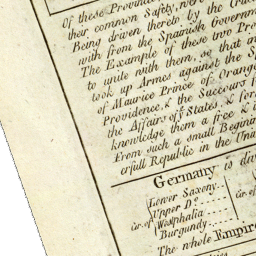 Of these Province
their common Safety, were
Being driven thereto by the Crue
with from the Spanish Governm
The Example of these two Pro
to unite with them, so that in
took up Armes against
of Maurice Prince of Orange
Providence, & the Succour
the Affairs of yͤ States, & for
knowledge them a free & i
From such a small Begining
erfull Republic in the Uni
Germany is div
Lower Saxony
Upper Dº
Cir. of Westphalia
Burgundy
Cir. of
The whole Empire